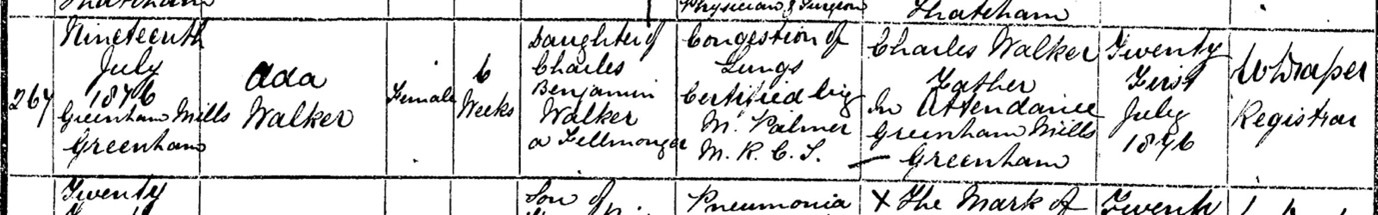 Thatcham
Physician & Surgeon
Thatcham
267
Nineteenth
July
1876
Greenham Mills
Greenham
Ada
Walker
Female
6
Weeks
Daughter of
Charles
Benjamin
Walker
a Fellmonger
Congestion of
Lungs
Certified by
M. Palmer
M. R. C. S.
Charles Walker
Father
In Attendance
Greenham Mills
Greenham
Twenty
First
July
1876
W Draper
Registrar
Twenty
Son of
Pneumonia
X The Mark of